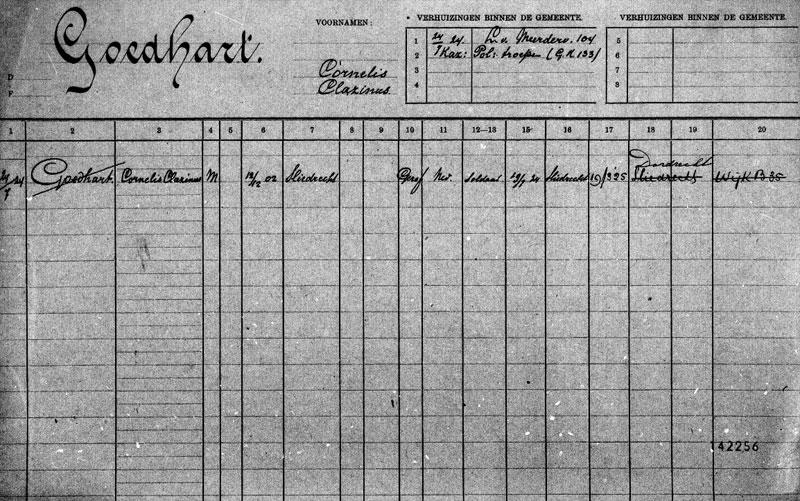 Goedhart.
VOORNAMEN:
Cornelis
Clazinus.
VERHUIZINGEN BINNEN DE GEMEENTE.
1 24/7 24. L. v. Meerderv. 104
2 Kaz: Pol: troepen (G.K 133)
3
4
VERHUIZINGEN BINNEN DE GEMEENTE.
5
6
7
8
D
F
1 2 3 4 5 6 7 8 9 10 11 12—13 15 16 17 18 19 20
Dordrecht
24/7 24 Goedhart. Cornelis Clazinus M 02 Sliedrecht Geref Ned. Soldaat 24 Sliedrecht Sliedrecht Wijk B 35
142256